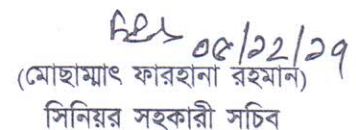 ০৫/১২/১৭
(মোছাম্মাৎ ফারহানা রহমান)
সিনিয়র সহকারী সচিব